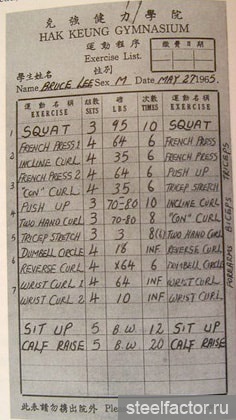 克強健力學院
HAK KEUNG GYMNASIUM
運動程序
Exercise List.
繳費日期
學生姓名 性別
Name BRUCE LEE Sex M Date MAY 27 1965.
運動名稱 組數 磅 次數 運動名稱
EXERCISE SETS LBS TIMES EXERCISE
1 SQUAT 3 95 10 SQUAT
FRENCH PRESS 1 4 64 6 FRENCH PRESS
2 INCLINE CURL 4 35 6 INCLINE CURL
FRENCH PRESS 2 4 64 6 PUSH UP
3 "CON" CURL 4 35 6 TRICEP STRETCH
PUSH UP 3 70-80 10 INCLINE CURL
4 TWO HAND CURL 3 70-80 8 "CON" CURL
5 TRICEP STRETCH 3 3 8(6) TWO HAND CURL
6 DUMBELL CIRCLE 4 16 INF REVERSE CURL
REVERSE CURL 4 x64 6 DUMBELL CIRCLE
7 WRIST CURL 1 4 64 INF WRIST CURL 1
WRIST CURL 2 4 10 INF WRIST CURL 2
SIT UP 5 B.W. 12 SIT UP
CALF RAISE 5 B.W 20 CALF RAISE
TRICEPS
BICEPS
FOREARMS
此券請勿攜出院外 Ple
steelfactor.ru